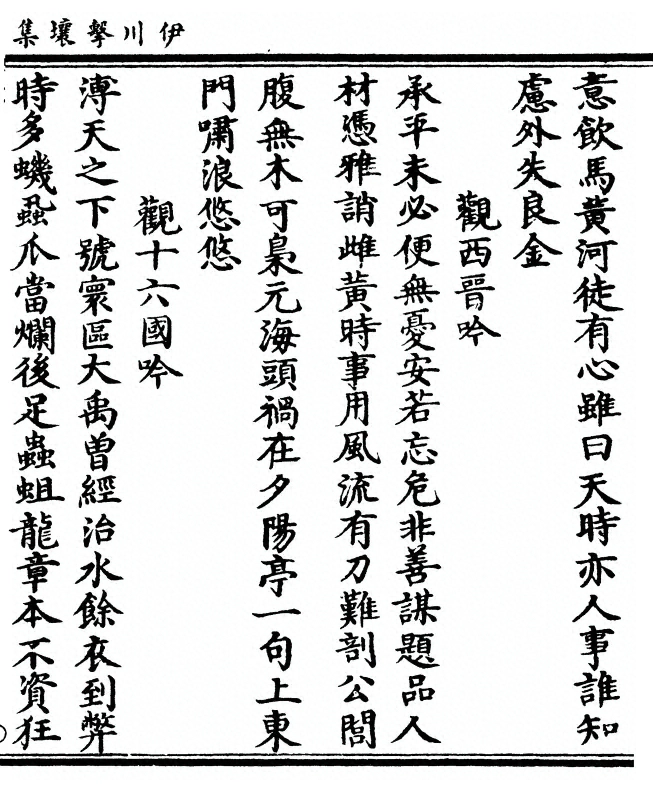 伊川擊壤集
意飲馬黃河徒有心雖曰天時亦人事誰知
慮外失良金
觀西晉吟
承平未必便無憂安若忘危非善謀題品人
材憑雅誚雌黃時事用風流有刀難剖公閭
腹無木可梟元海頭禍在夕陽亭一句上東
門嘯浪悠悠
觀十六國吟
溥天之下號寰區大禹曾經治水餘衣到弊
時多蟣蝨爪當爛後足蟲蛆龍章本不資狂